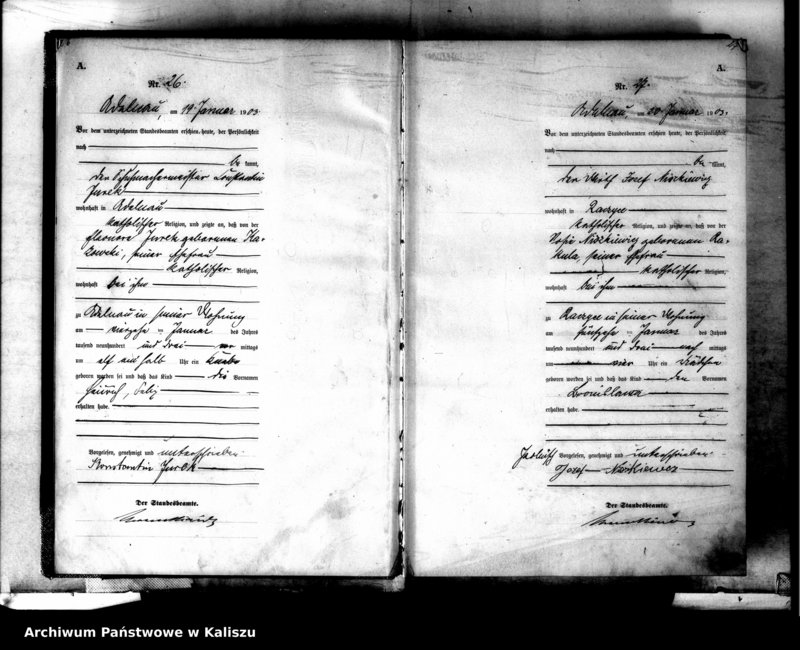 A.
Nr. 26.
Adelnau, am 19 Januar 1903.
Vor dem unterzeichneten Standesbeamten erschien heute, der Persönlichkeit
nach
be kannt,
der Schuhmachermeister Constantin
Jurek
wohnhaft in Adelnau
katholischer Religion, und zeigte an, daß von der
Eleonore Jurek geborenen
seiner Ehefrau
katholischer Religion,
wohnhaft bei ihm
zu Adelnau in seiner Wohnung
am Januar des Jahres
tausend neunhundert und drei vor mittags
um elf ein halb Uhr ein Knabe
geboren worden sei und daß das Kind die Vornamen
Heinrich, Felix
erhalten habe.
Vorgelesen, genehmigt und unterschrieben.
Konstantin Jurek
Der Standesbeamte.
A.
Nr. 27.
Adelnau, am 20 Januar 1903.
Vor dem unterzeichneten Standesbeamten erschien heute, der Persönlichkeit
nach
be kannt,
der Wirth Josef
wohnhaft in
katholischer Religion, und zeigte an, daß von der
geborenen Ra-
kula, seiner Ehefrau
katholischer Religion,
wohnhaft bei ihm
zu in seiner Wohnung
am fünfzehn Januar des Jahres
tausend neunhundert und drei nach mittags
um vier Uhr ein Mädchen
geboren worden sei und daß das Kind den Vornamen
erhalten habe.
Vorgelesen, genehmigt und unterschrieben.
Der Standesbeamte.
Archiwum Państwowe w Kaliszu